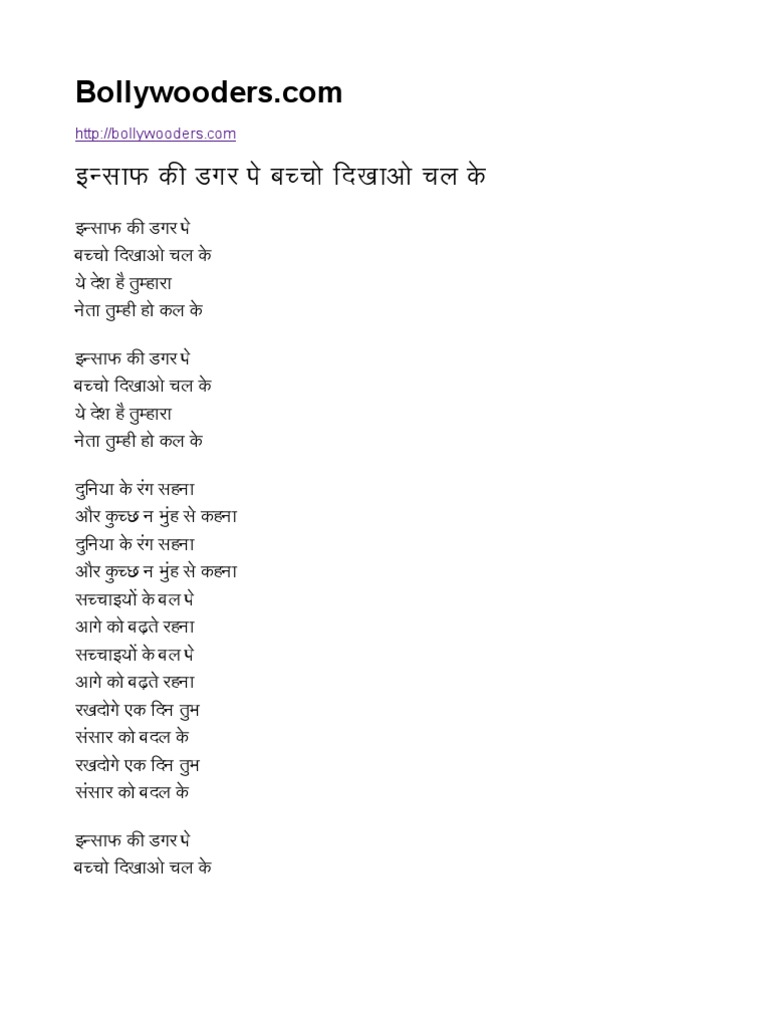 Bollywooders.com
http://bollywooders.com
इन्साफ की डगर पे बच्चो दिखाओ चल के
इन्साफ की डगर पे
बच्चो दिखाओ चल के
ये देश है तुम्हारा
नेता तुम्ही हो कल के
इन्साफ की डगर पे
बच्चो दिखाओ चल के
ये देश है तुम्हारा
नेता तुम्ही हो कल के
दुनिया के रंग सहना
और कुच्छ न मुंह से कहना
दुनिया के रंग सहना
और कुच्छ न मुंह से कहना
सच्चाइयों के बल पे
आगे को बढ़ते रहना
सच्चाइयों के बल पे
आगे को बढ़ते रहना
रखदोगे एक दिन तुम
संसार को बदल के
रखदोगे एक दिन तुम
संसार को बदल के
इन्साफ की डगर पे
बच्चो दिखाओ चल के